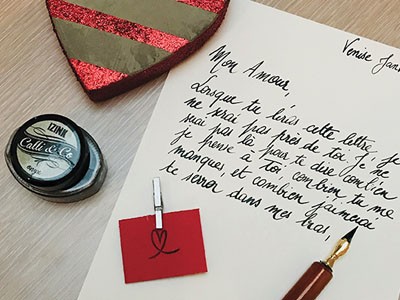 Venise Jan
Mon Amour,
Lorsque tu liras cette lettre, je
ne serai pas près de toi. Je ne
serai pas là pour te dire combien
je pense à toi, combien tu me
manques, et combien j'aimerai
te serrer dans mes bras,
IZINK
Calli & Co